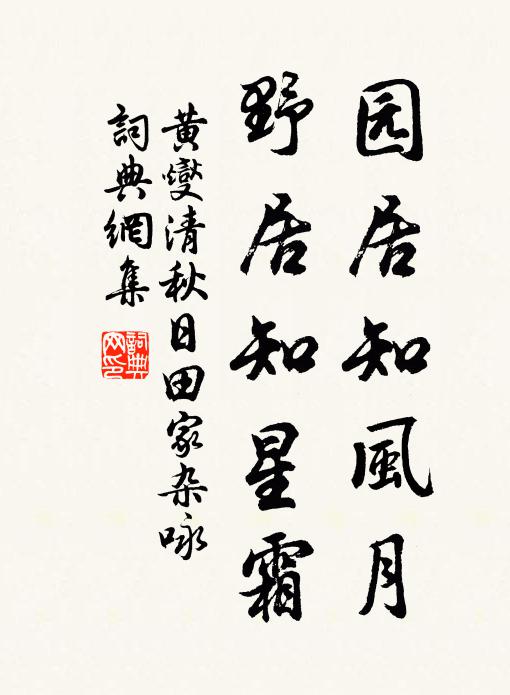 园居知風月
野居知星霜
黄燮清秋日田家杂咏
詞典網集
詞典網印